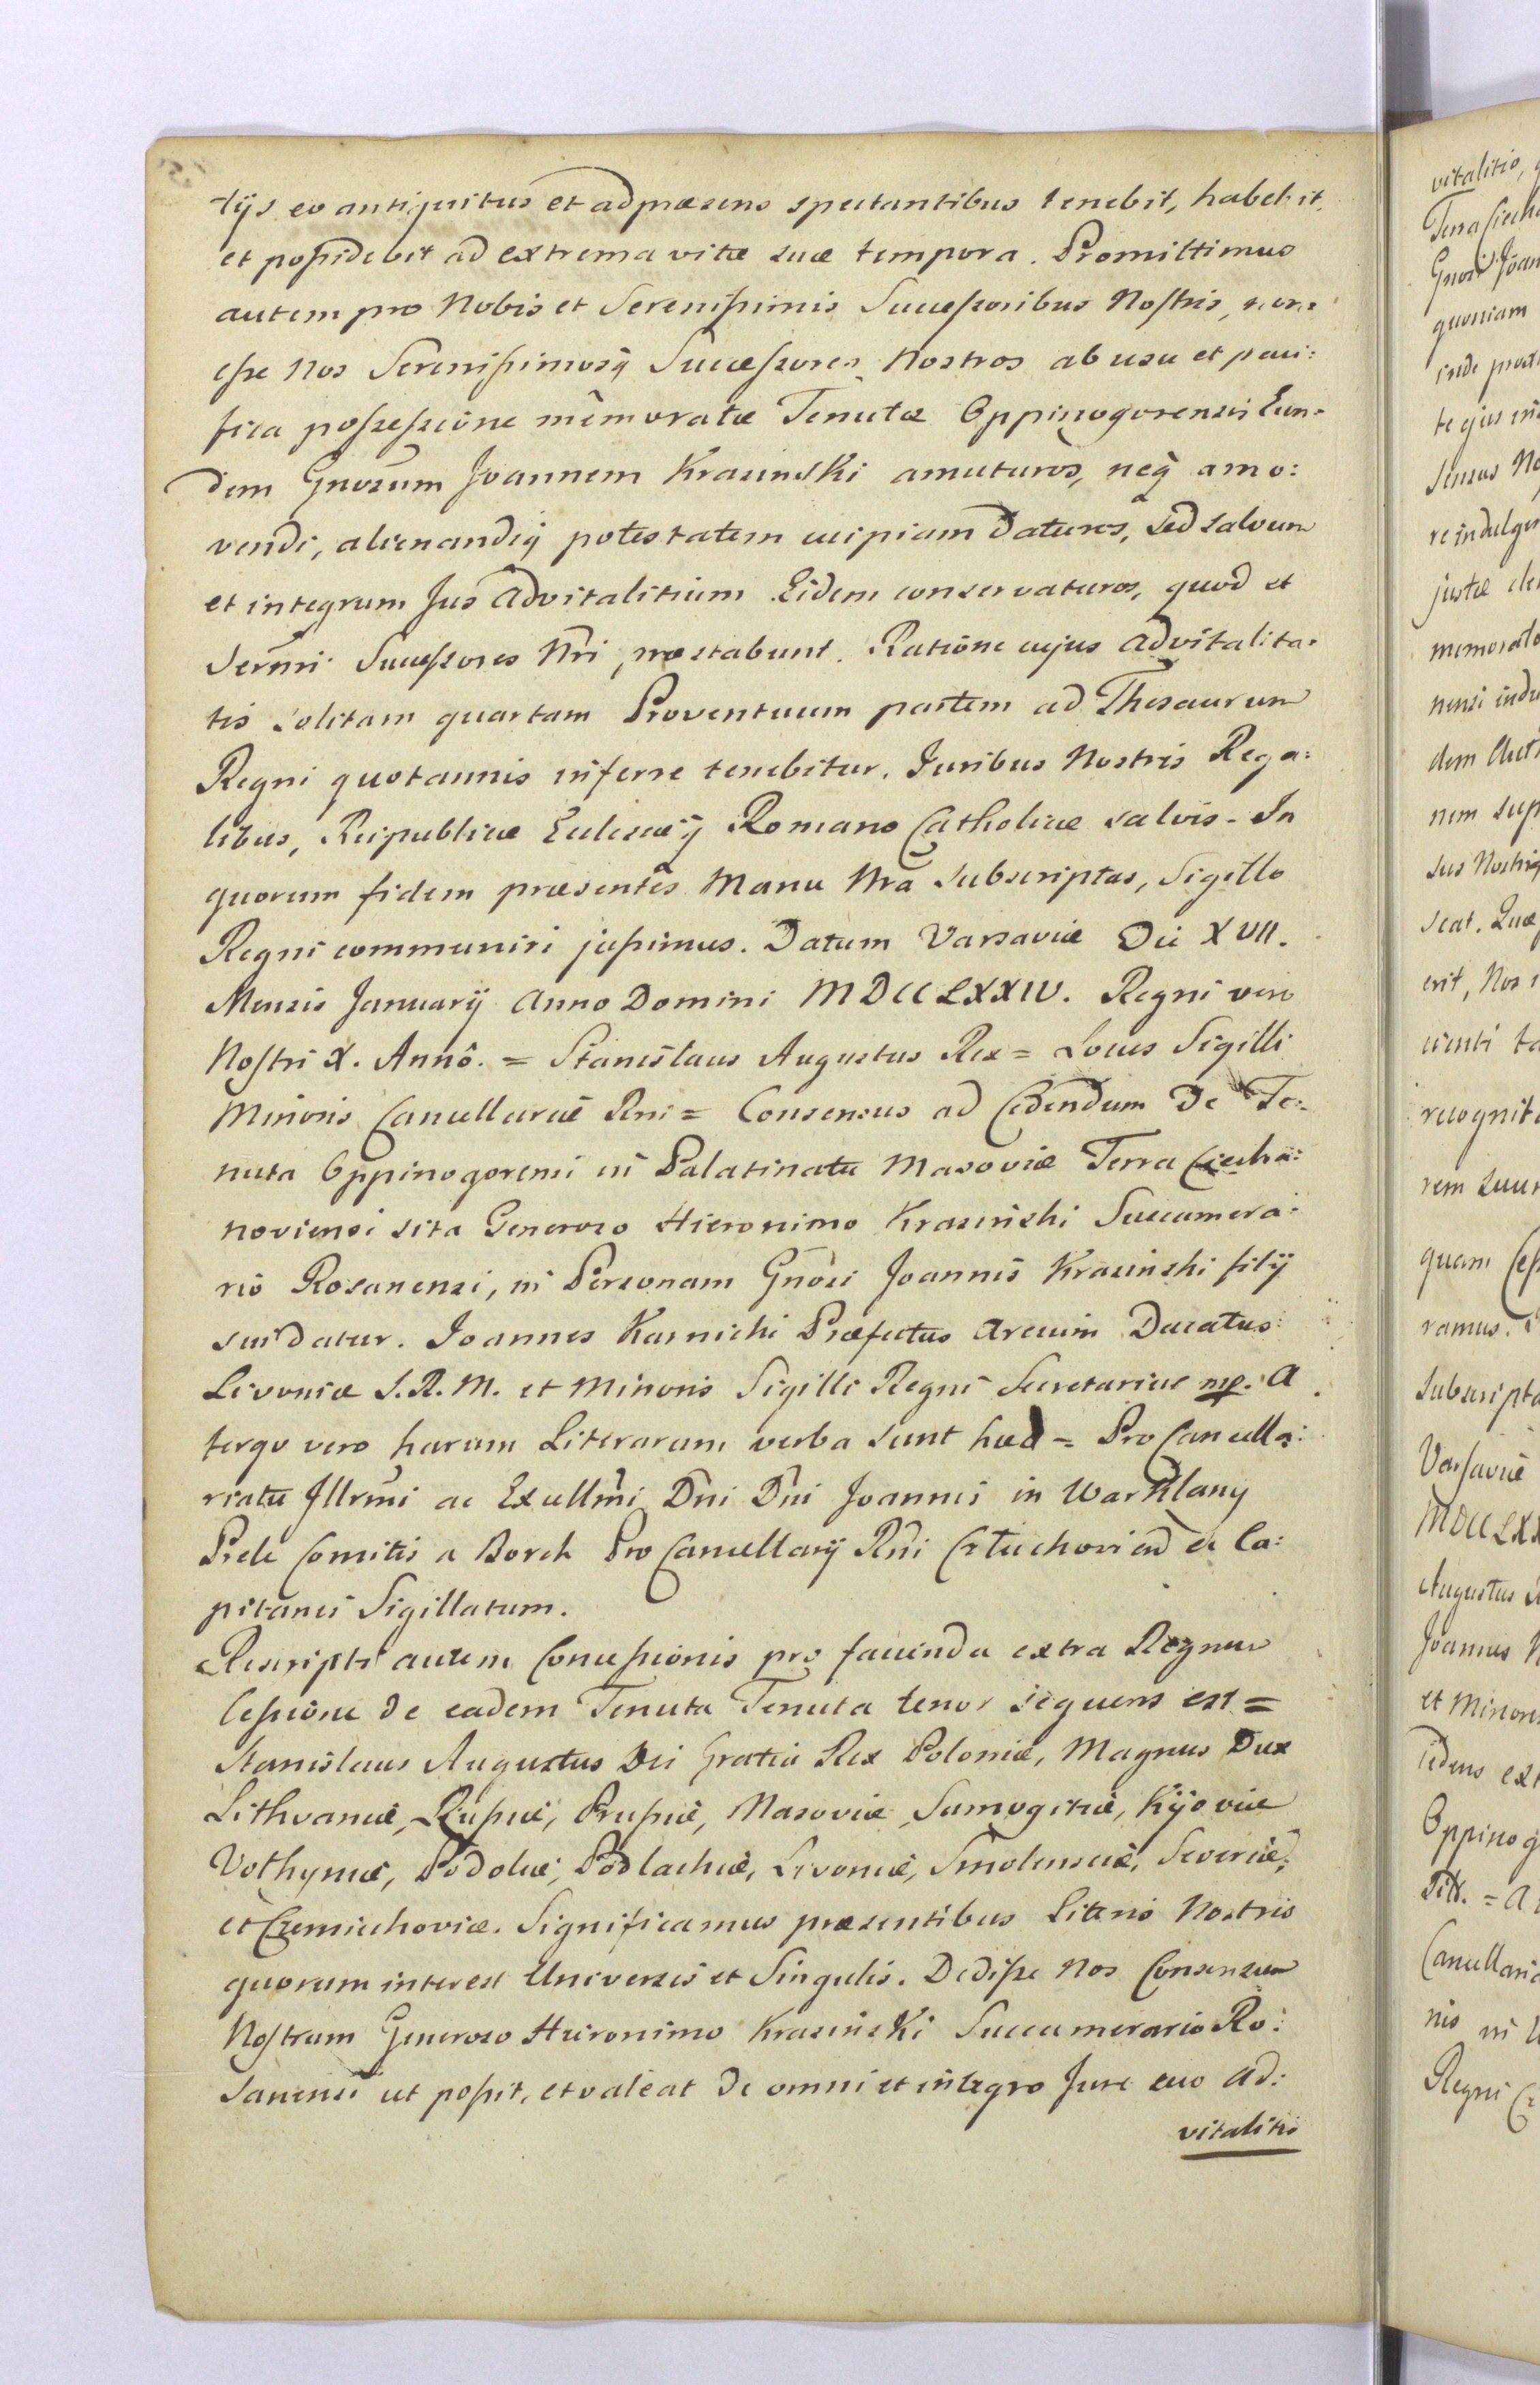 tijs eo antiquitus et ad præsens spectantibus tenebit, habebit,
et possidebit ad extrema vitæ suæ tempora. Promittimus
autem pro Nobis et Serenissimis Successoribus Nostris, non
esse Nos Serenissimosq Successores Nostros ab usu et paci:
fica possessione memoratæ Tenutæ Oppinogorensi Eun=
dem Gnosum Joannem Krasinski amuturos, neq amo:
vendi, alienandiq potestatem cuipiam daturos, sed salvum
et integrum Jus advitalitium Eidem conservaturos, quod et
Sermi Successores Nri, præstabunt. Ratione cujus advitalita=
tis solitam quartam Proventuum partem ad Thesaurum
Regni quotannis inferre tenebitur. Juribus Nostris Rega:
libus, Reipublicæ Eclesiæq Romano Catholicæ salvis - In
quorum fidem præsentes Manu Nra subscriptas, Sigillo
Regni communiri jussimus. Datum Varsaviæ Die XVII.
Mensis Januarij Anno Domini MDCCLXXIV. Regni vero
Nostri X. Anno. = Stanislaus Augustus Rex = Locus Sigilli
Minoris Cancellariæ Rni = Consensus ad Cedendum De Te:
nuta Oppinogorensi in Palatinatu Masoviæ Terra Ciecha:
noviensi sita Generoso Hieronimo Krasinski Succamera:
rio Rosanensi, in Personam Gnosi Joannis Krasinski filij
sui datur. Joannes Karnicki Præfectus Arcium Ducatus
Livoniæ S.R.M. et Minoris Sigilli Regni Secretarius mp. A
tergo vero harum Literarum verba sunt hæc = Pro Cancella:
riatu Illrmi ac Excllmi Dni Dni Joannis in Warklany
Prele Comitis a Borch Pro Cancellarij Rni Cztuchoviend et Ca:
pitanei Sigillatum.
Rescripti autem Concessionis pro facienda extra Regnum
Cessione de eadem Tenuta Tenuta tenor sequens est =
Stanislaus Augustus Dei Gratia Rex Poloniæ, Magnus Dux
Lithvaniæ, Russiæ, Prussiæ, Masoviæ, Samogitiæ, Kijoviæ
Vothyniæ, Podoliæ, Podlachiæ, Livoniæ, Smolensciæ, Severiæ,
et Czerniechoviæ. Significamus præsentibus Literis Nostris
quorum interest Universis et Singulis. Dedisse Nos Consensum
Nostrum Generoso Hieronimo Krasinski Succamerario Ro:
sanensi ut possit, et valeat de omni et integro Jure suo ad:
vitalitio
vitalitio,
Terra Ciech
Gnosi Joan
quoniam
sede
te ejus
sensus No
re indulge
justæ
memorato
nensi indu
dem
nem sup
sus Nostriq
scat. Quæ
erit, Nos
cienti
recognit
rem suum
quam Cess
ramus.
subscripta
Varsaviæ
MDCCLXX
Augustus R
Joannes K
et Minoris
cedens ext
Oppinog
= A
Cancellaria
nis in W
Regni Cz